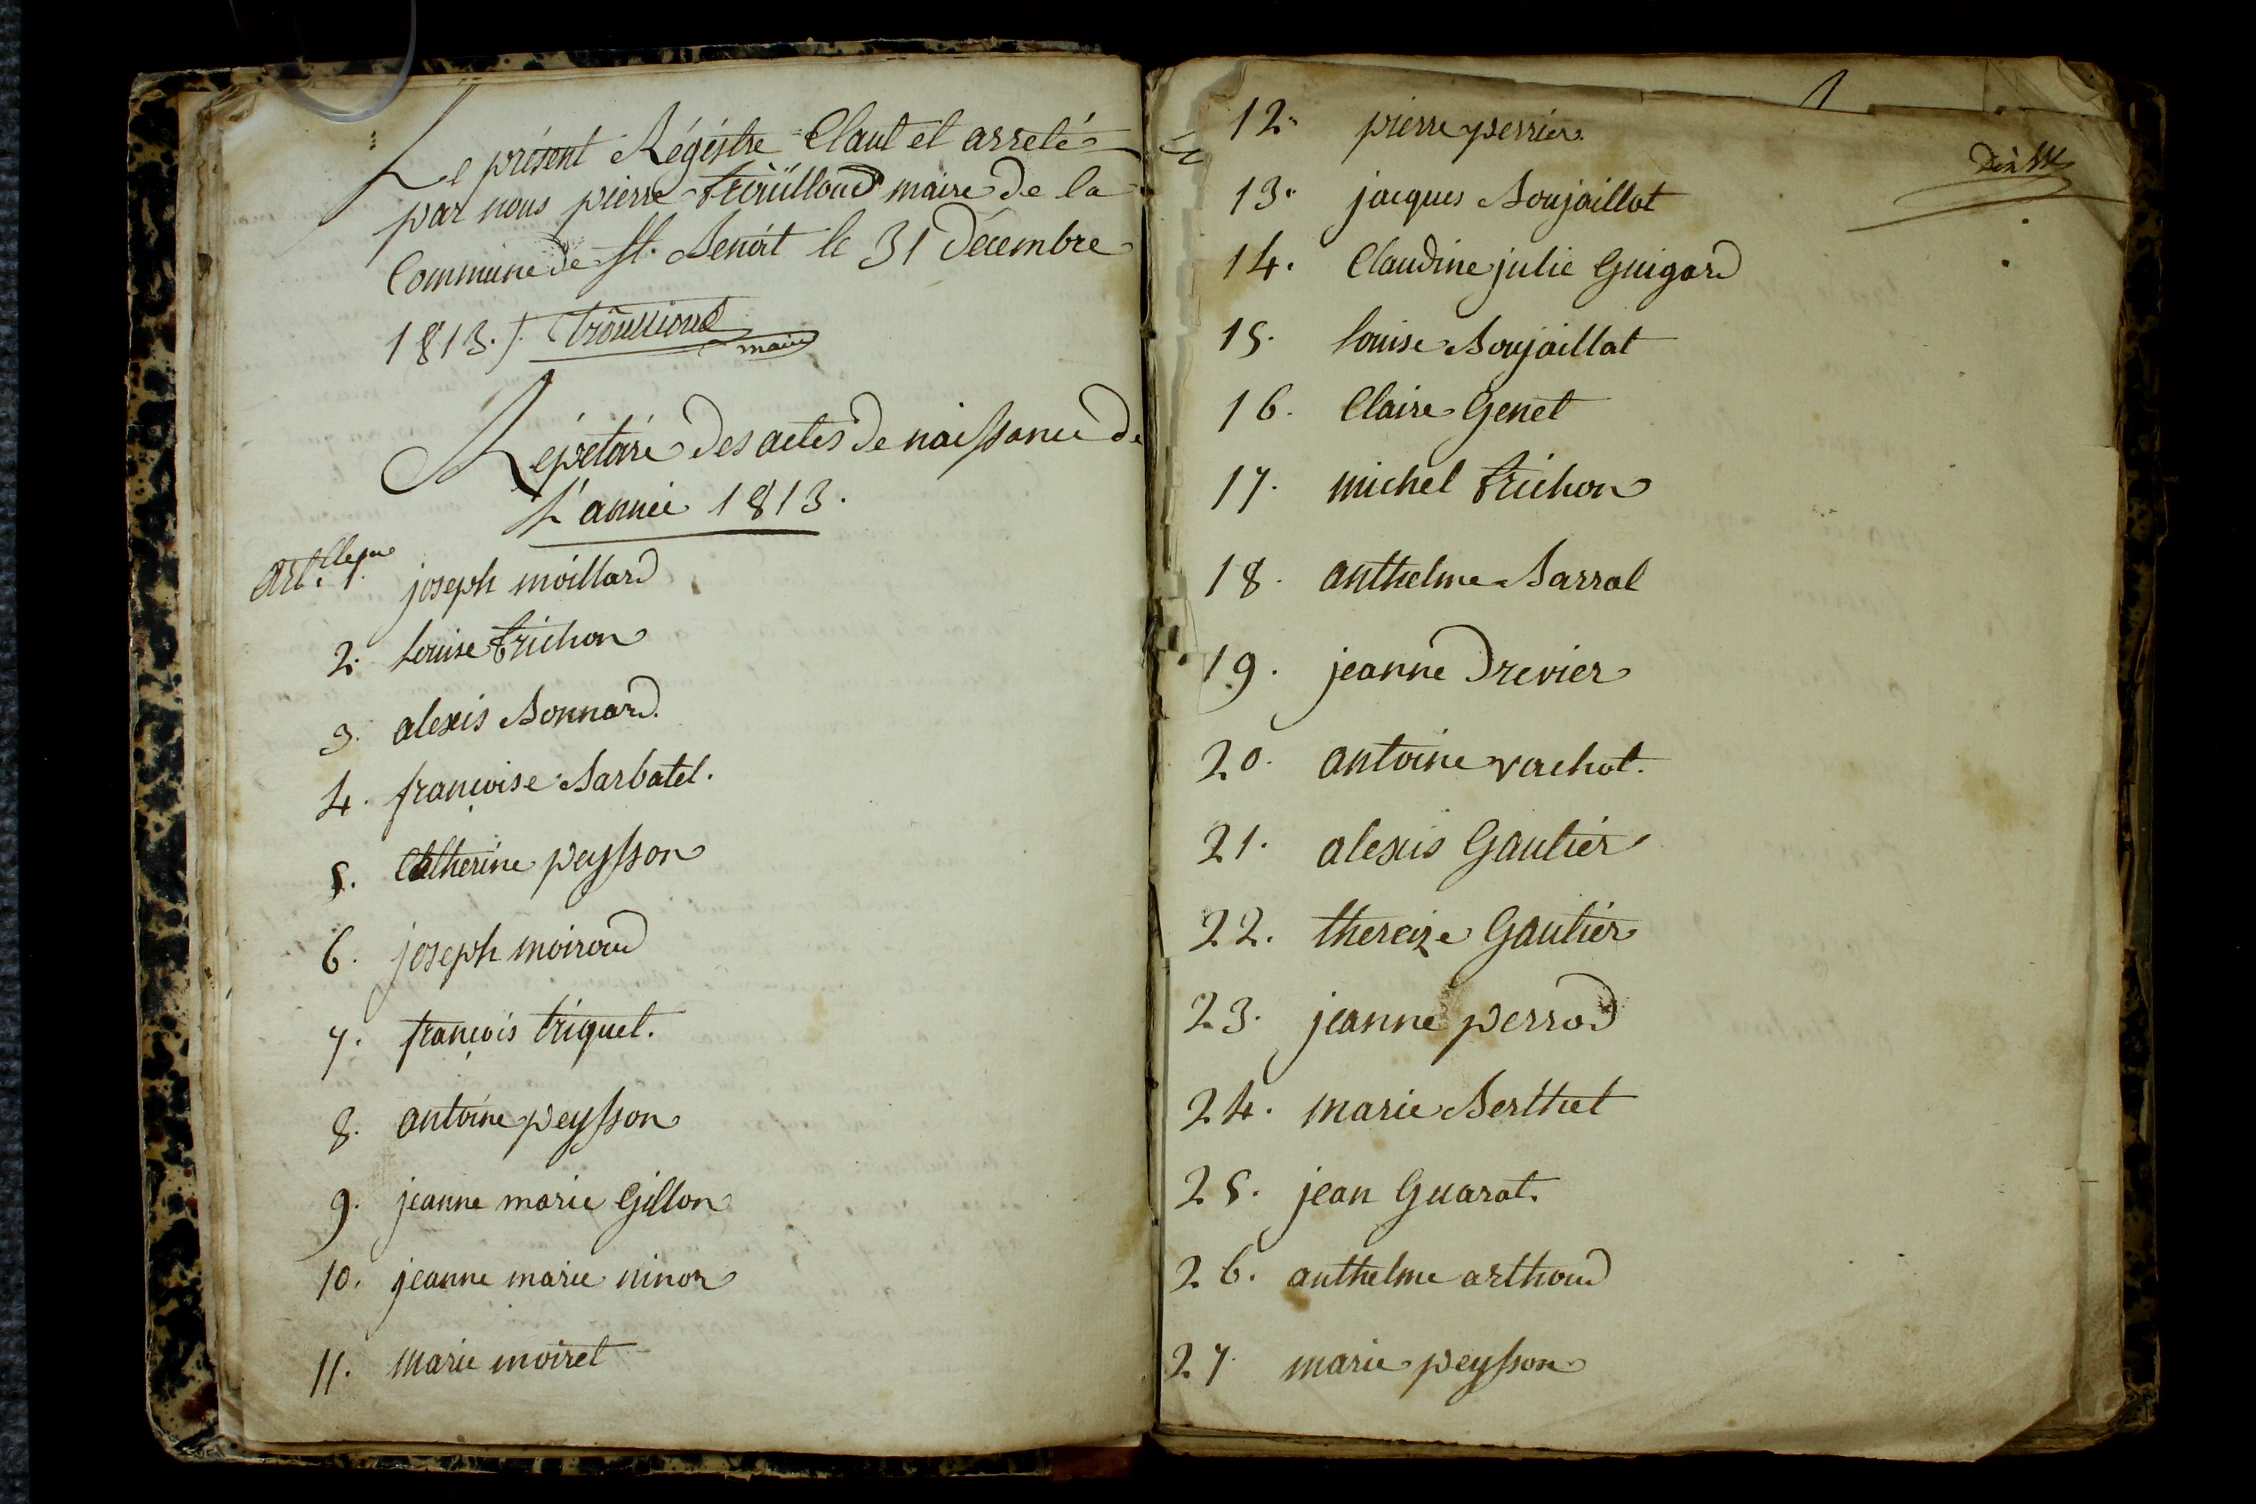 Le présent Régistre Claut et arreté
par nous pierre trouilloud maire de la
Commune de St. Benoit le 31 décembre
1813. /. trouilloud
maire
Répetoire des actes de naissance de
L'année 1813.
Art.cle 1er joseph moillard
2. Louise trichon
3. alexis Bonnard.
4. françoise Barbatel.
5. Catherine peysson
6. joseph moiroud
7. françois triquet.
8. antoine peysson
9. jeanne marie Gillon
10. jeanne marie ninon
11. marie moiret
12. pierre perrier.
13. jacques Boujaillot
14. Claudine julie Guigard
15. Louise Boujaillat
16. Claire Genet
17. michel trichon
18. anthelme Barral
19. jeanne Drevier
20. antoine vachot.
21. alexis Gautier
22. thereize Gautier
23. jeanne perrod
24. marie Berthet
25. jean Guarat.
26. anthelme arthoud
27. marie peysson